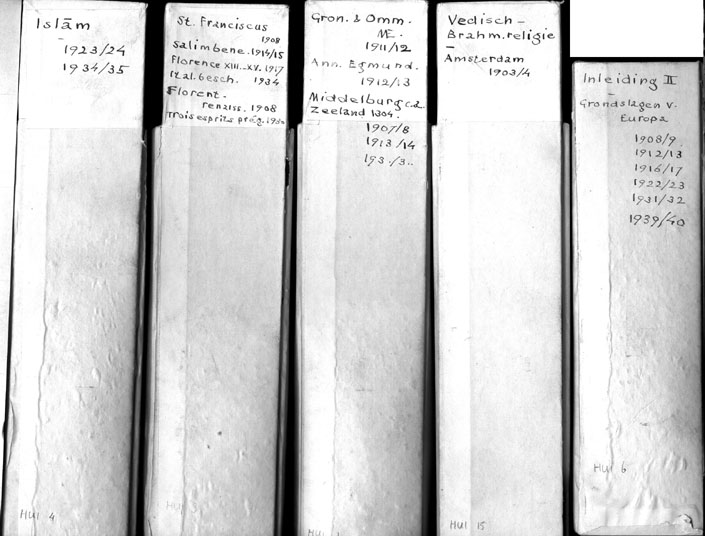 Islām
1923/24
1934/35
HUI 4
St. Franciscus
1908
Salimbene. 1914/15
Florence XIII.-XV. 1917
Ital. Gesch. 1934
Florent.
renaiss. 1908
Trois esprits prég.
HUI
Gron. & Omm.
ME.
1911/12
Ann. Egmund.
1912/13
Middelburg c.a.
Zeeland 1304.
1907/8
1913/14
HUI
Vedisch-
Brahm. religie
Amsterdam
1903/4
HUI 15
Inleiding II
Grondslagen v.
Europa
1908/9
1912/13
1916/17
1922/23
1931/32
1939/40
HUI 6